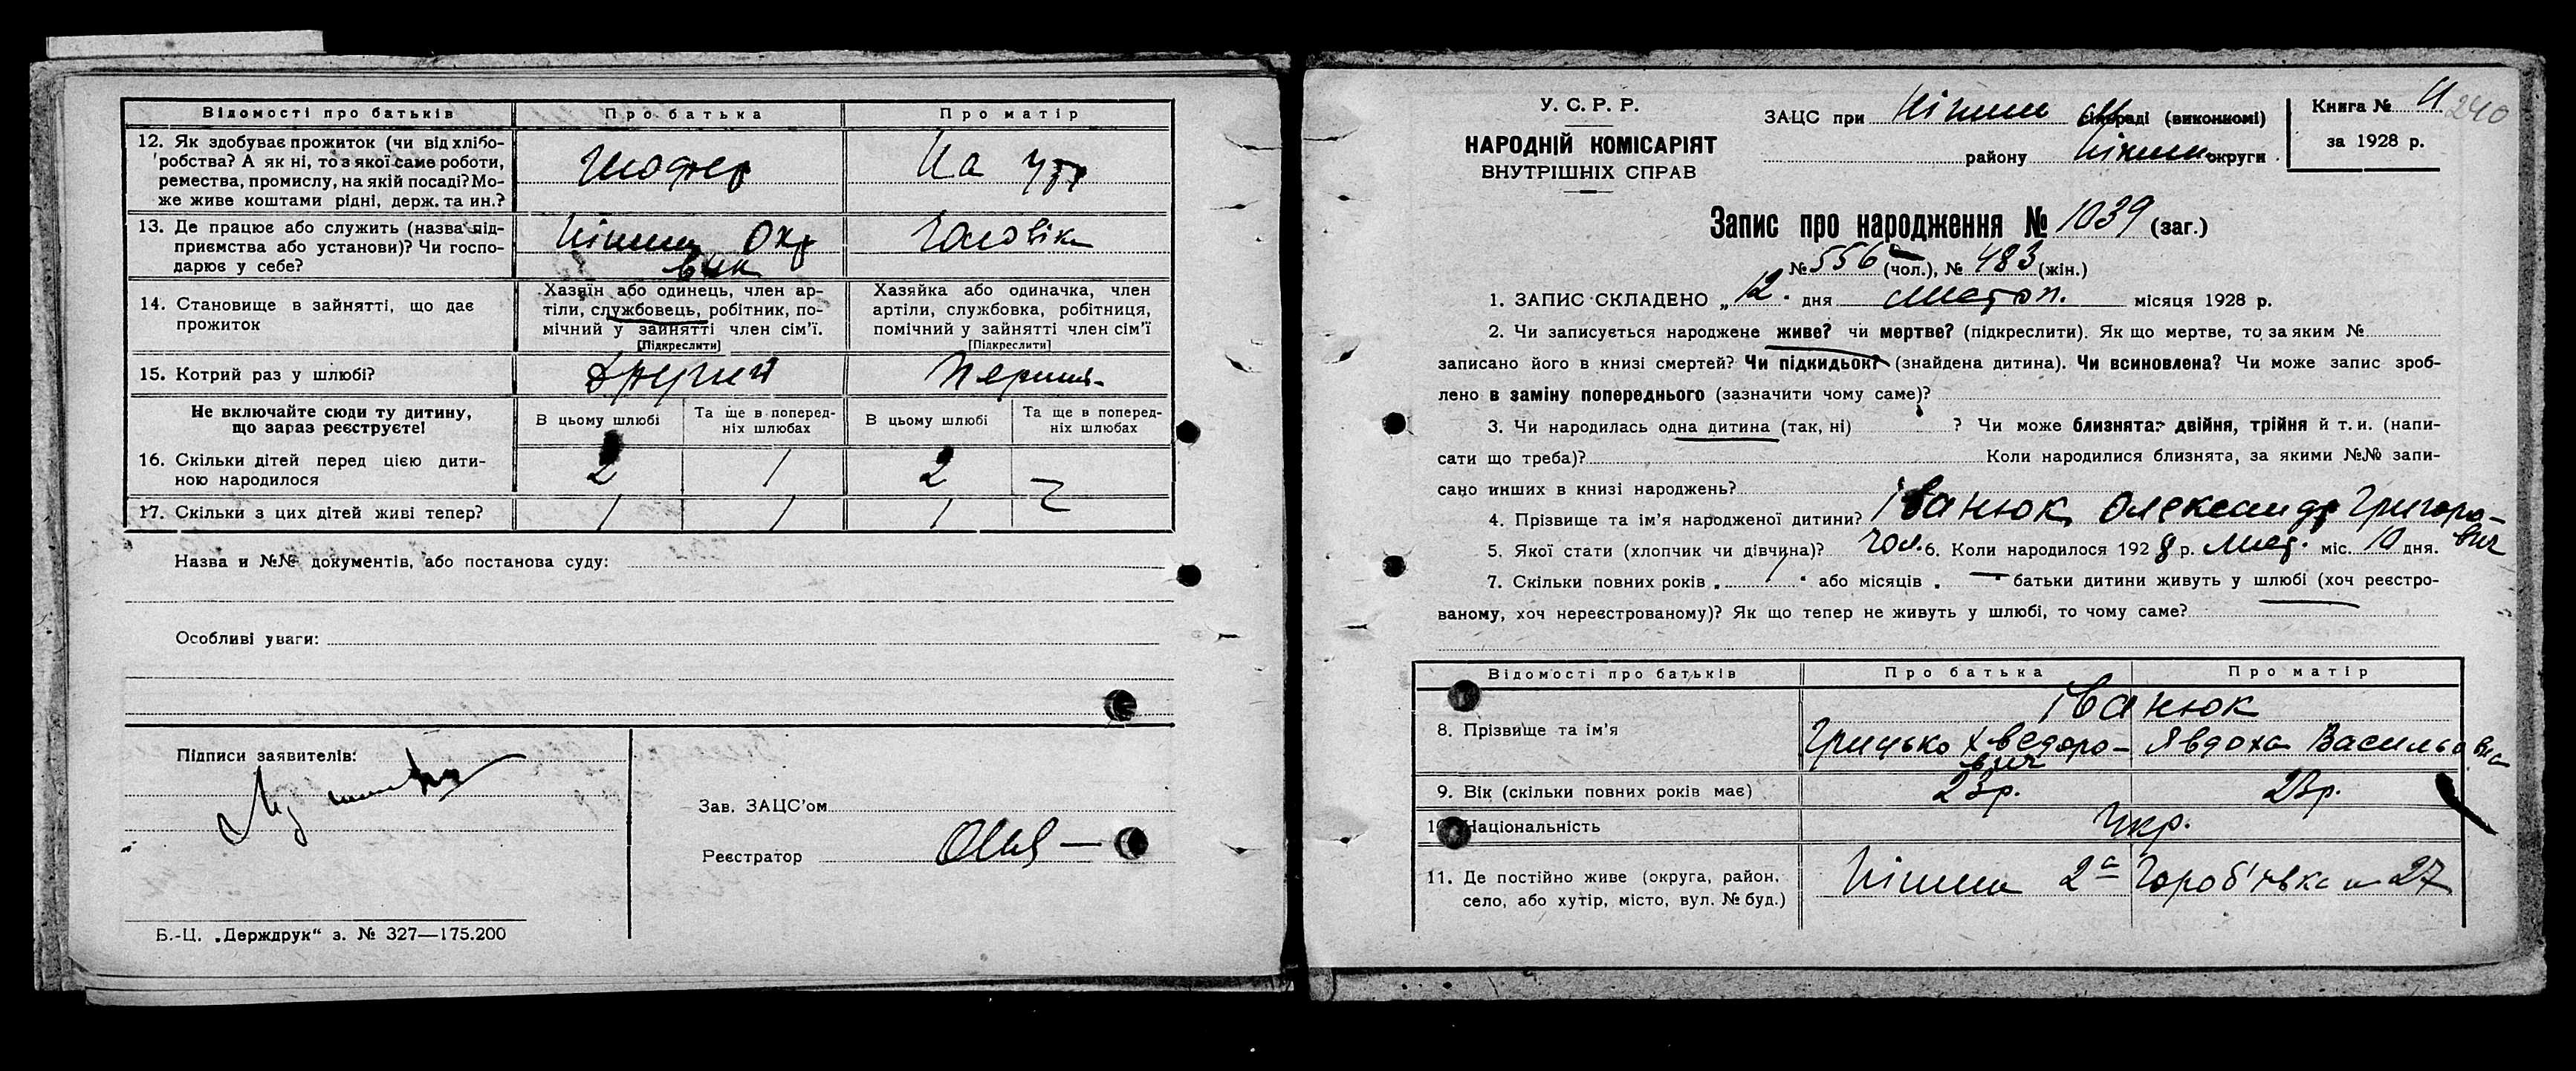 Відомості про батьків Про батька Про матір
12. Як здобуває прожиток (чи від хлібо-
робства? А як ні, то з якої саме роботи,
ремества, промислу, на якій посаді? Мо-
же живе коштами рідні, держ. та ин.?
Шофер На утр
13. Де працює або служить (назва під-
приємства або установи)? Чи госпо-
дарює у себе?
Ніжин Окр Чоловіка
вик
14. Становище в зайнятті, що дає
прожиток
Хазяїн або одинець, член ар-
тіли, службовець, робітник, по-
мічний у зайнятті член сім'ї.
[Підкреслити]
Хазяйка або одиначка, член
артіли, службовка, робітниця,
помічний у зайнятті член сім'ї
[Підкреслити]
15. Котрий раз у шлюбі? Другий
Не включайте сюди ту дитину,
що зараз реєструєте!
В цьому шлюбі Та ще в поперед-
ніх шлюбах В цьому шлюбі Та ще в поперед-
ніх шлюбах
16. Скільки дітей перед цією дити-
ною народилося
2 1 2 —
17. Скільки з цих дітей живі тепер? 1 1 1
Назва и №№ документів, або постанова суду:
Особливі уваги:
Підписи заявителів:
Зав. ЗАЦС'ом
Реєстратор
Б.-Ц. „Держдрук“ з. № 327—175.200
У. С. Р. Р.
НАРОДНІЙ КОМІСАРІЯТ
ВНУТРІШНІХ СПРАВ
ЗАЦС при Ніжин сільраді (виконкомі)
району Ніжин округи
Книга № 11
за 1928 р.
240
Запис про народження № 1039 (заг.)
№ 556 (чол.), № 483 (жін.)
1. ЗАПИС СКЛАДЕНО „12. дня листоп. місяця 1928 р.
2. Чи записується народжене живе? чи мертве? (підкреслити). Як що мертве, то за яким №
записано його в книзі смертей? Чи підкидьок? (знайдена дитина). Чи всиновлена? Чи може запис зроб-
лено в заміну попереднього (зазначити чому саме)?
3. Чи народилась одна дитина (так, ні) ? Чи може близнята: двійня, трійня й т. и. (напи-
сати що треба)? Коли народилися близнята, за якими №№ запи-
сано инших в книзі народжень?
4. Прізвище та ім'я народженої дитини? Іванюк Олександр Григоро-
вич
5. Якої стати (хлопчик чи дівчина)? чол. 6. Коли народилося 1928 р. лист. міс. 10 дня.
7. Скільки повних років „ “ або місяців „ — “ батьки дитини живуть у шлюбі (хоч реєстро-
ваному, хоч нереєстрованому)? Як що тепер не живуть у шлюбі, то чому саме?
Відомості про батьків Про батька Про матір
Іванюк
8. Прізвище та ім'я Грицько Хведоро- Явдоха Васильовна
вич
9. Вік (скільки повних років має) 23р. 23р.
10. Національність Укр.
11. Де постійно живе (округа, район,
село, або хутір, місто, вул. № буд.)
Ніжин 2а Гороб'ївка 27